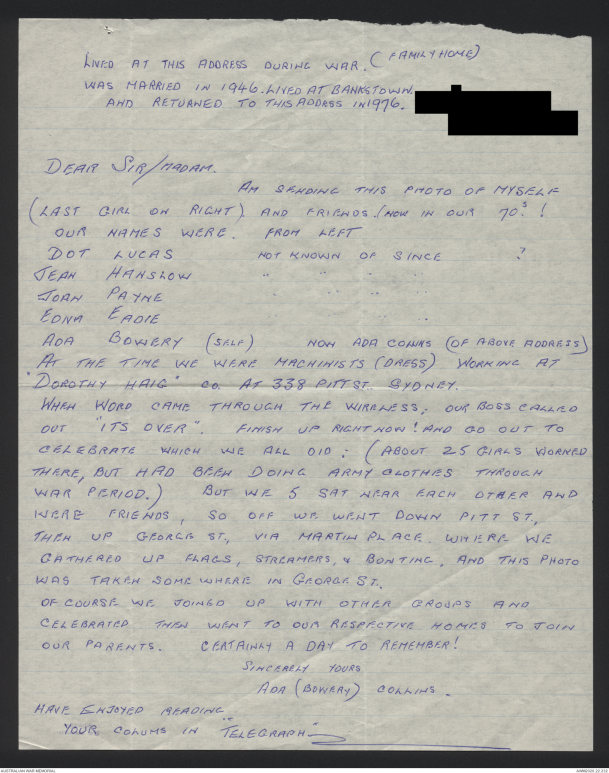 LIVED AT THIS ADDRESS DURING WAR. (FAMILY HOME)
WAS MARRIED IN 1946. LIVED AT BANKSTOWN.
AND RETURNED TO THIS ADDRESS IN 1976.
DEAR SIR/MADAM.
AM SENDING THIS PHOTO OF MYSELF
(LAST GIRL ON RIGHT) AND FRIENDS. (NOW IN OUR 70'S!
OUR NAMES WERE. FROM LEFT
DOT LUCAS NOT KNOWN OF SINCE ?
JEAN HANSLOW " " "
JOAN PAYNE " "
EDNA EADIE
ADA BOWERY (SELF) NOW ADA COLLINS (OF ABOVE ADDRESS)
AT THE TIME WE WERE MACHINISTS (DRESS) WORKING AT
"DOROTHY HAIG" CO. AT 338 PITT ST. SYDNEY.
WHEN WORD CAME THROUGH THE WIRELESS, OUR BOSS CALLED
OUT "ITS OVER". FINISH UP RIGHT NOW! AND GO OUT TO
CELEBRATE WHICH WE ALL DID: (ABOUT 25 GIRLS WORKED
THERE, BUT HAD BEEN DOING ARMY CLOTHES THROUGH
WAR PERIOD.) BUT WE 5 SAT NEAR EACH OTHER AND
WERE FRIENDS, SO OFF WE WENT DOWN PITT ST,
THEN UP GEORGE ST, VIA MARTIN PLACE. WHERE WE
GATHERED UP FLAGS, STREAMERS, & BONTING, AND THIS PHOTO
WAS TAKEN SOMEWHERE IN GEORGE ST.
OF COURSE WE JOINED UP WITH OTHER GROUPS AND
CELEBRATED THEN WENT TO OUR RESPECTIVE HOMES TO JOIN
OUR PARENTS. CERTAINLY A DAY TO REMEMBER!
SINCERELY YOURS
ADA (BOWERY) COLLINS.
HAVE ENJOYED READING
YOUR COLUMS IN "TELEGRAPH"
AUSTRALIAN WAR MEMORIAL